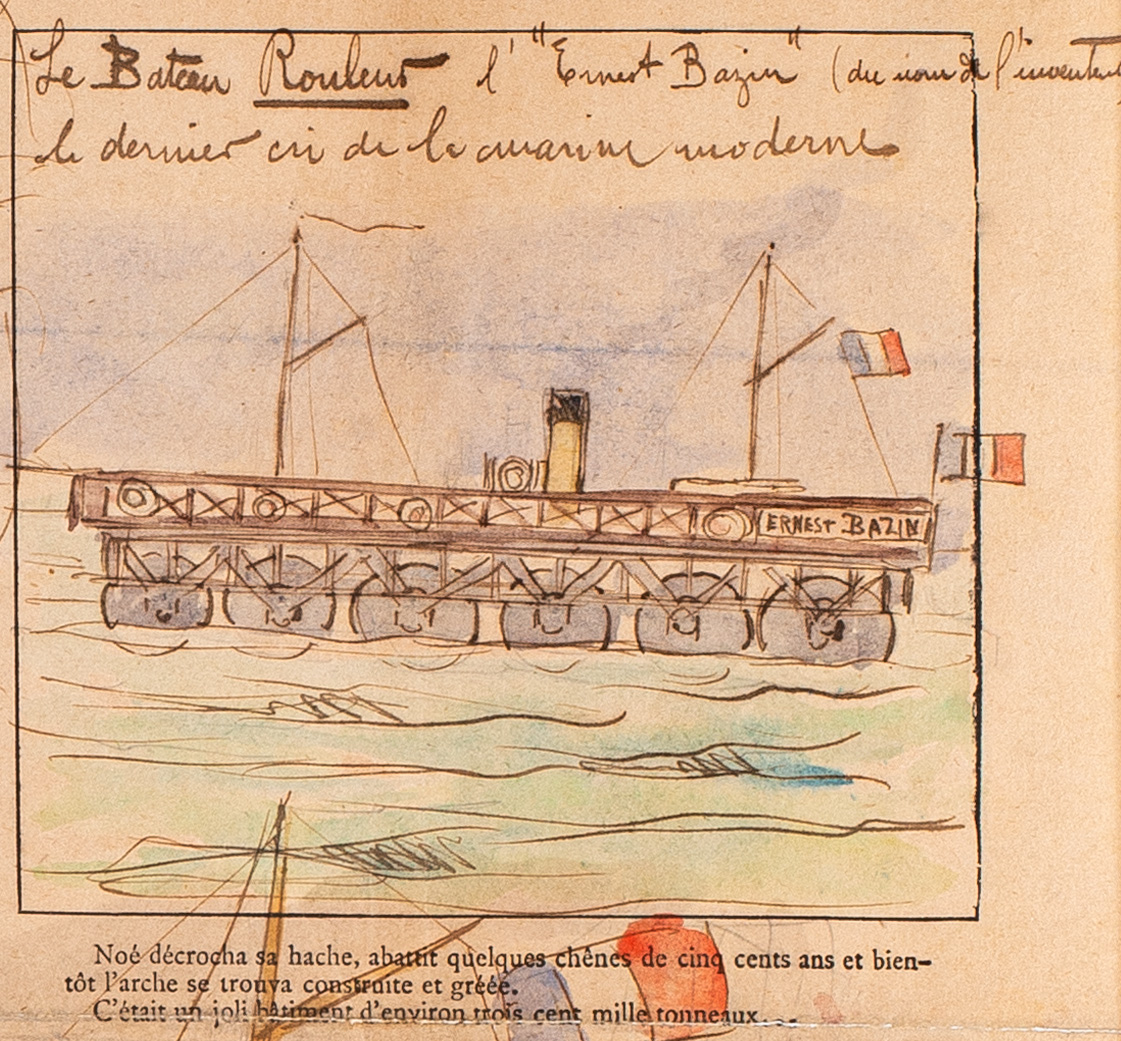 Le Bateau Rouleur l' "Ernest Bazin" (du nom de l'inventeur
le dernier cri de la marine moderne
ERNEST BAZIN
Noé décrocha sa hache, abattit quelques chênes de cinq cents ans et bien-
tôt l'arche se trouva construite et gréée.
C'était un joli bâtiment d'environ trois cent mille tonneaux...